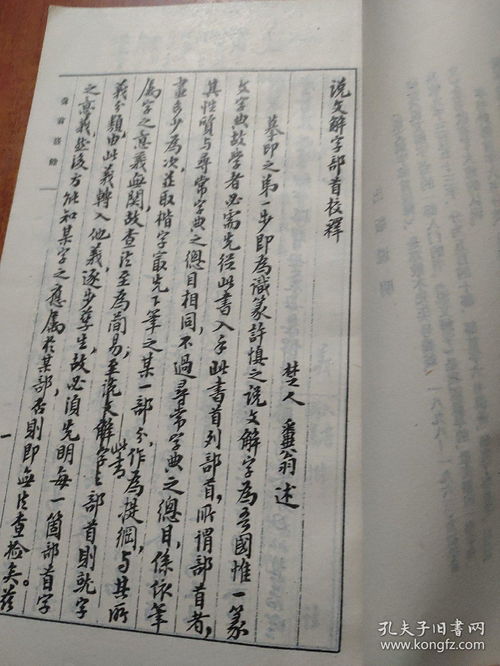 说文解字部首校釋
楚人 壨翁 述
摹印之第一步即為識篆許慎之说文解字為吾國惟一篆
文字典故学者必需先從此書入手此書首列部首，所謂部首者，
其性質与尋常字典之總目相同，不過尋常字典之總目，係依筆
畫多少為次，並取楷字最先下筆之某一部分，作為提綱，与其所
属字之意義無関，故查法至為簡易，至说文解字此書之部首則就字
義分類，由此義轉入他義，逐步孳生，故必須先明每一箇部首字
之意義，然後方能知某字之應属於某部，否則即無法查檢矣。兹
一
孔夫子旧书网
www.kongfz.com